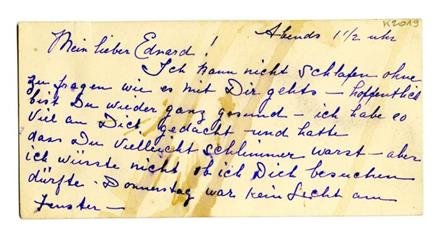 K2019
Abends 11/2 uhr
Mein lieber Eduard!
Ich kann nicht schlafen ohne
zu fragen wie es mit Dir gehts – hoffentlich
bist Du wieder ganz gesund – ich habe so
viel an Dich gedacht – und hatte
dass Du vielleicht schlimmer warst – aber
ich wüsste nicht ob ich Dich besuchen
dürfte. Donnerstag war kein Licht am
Fenster –